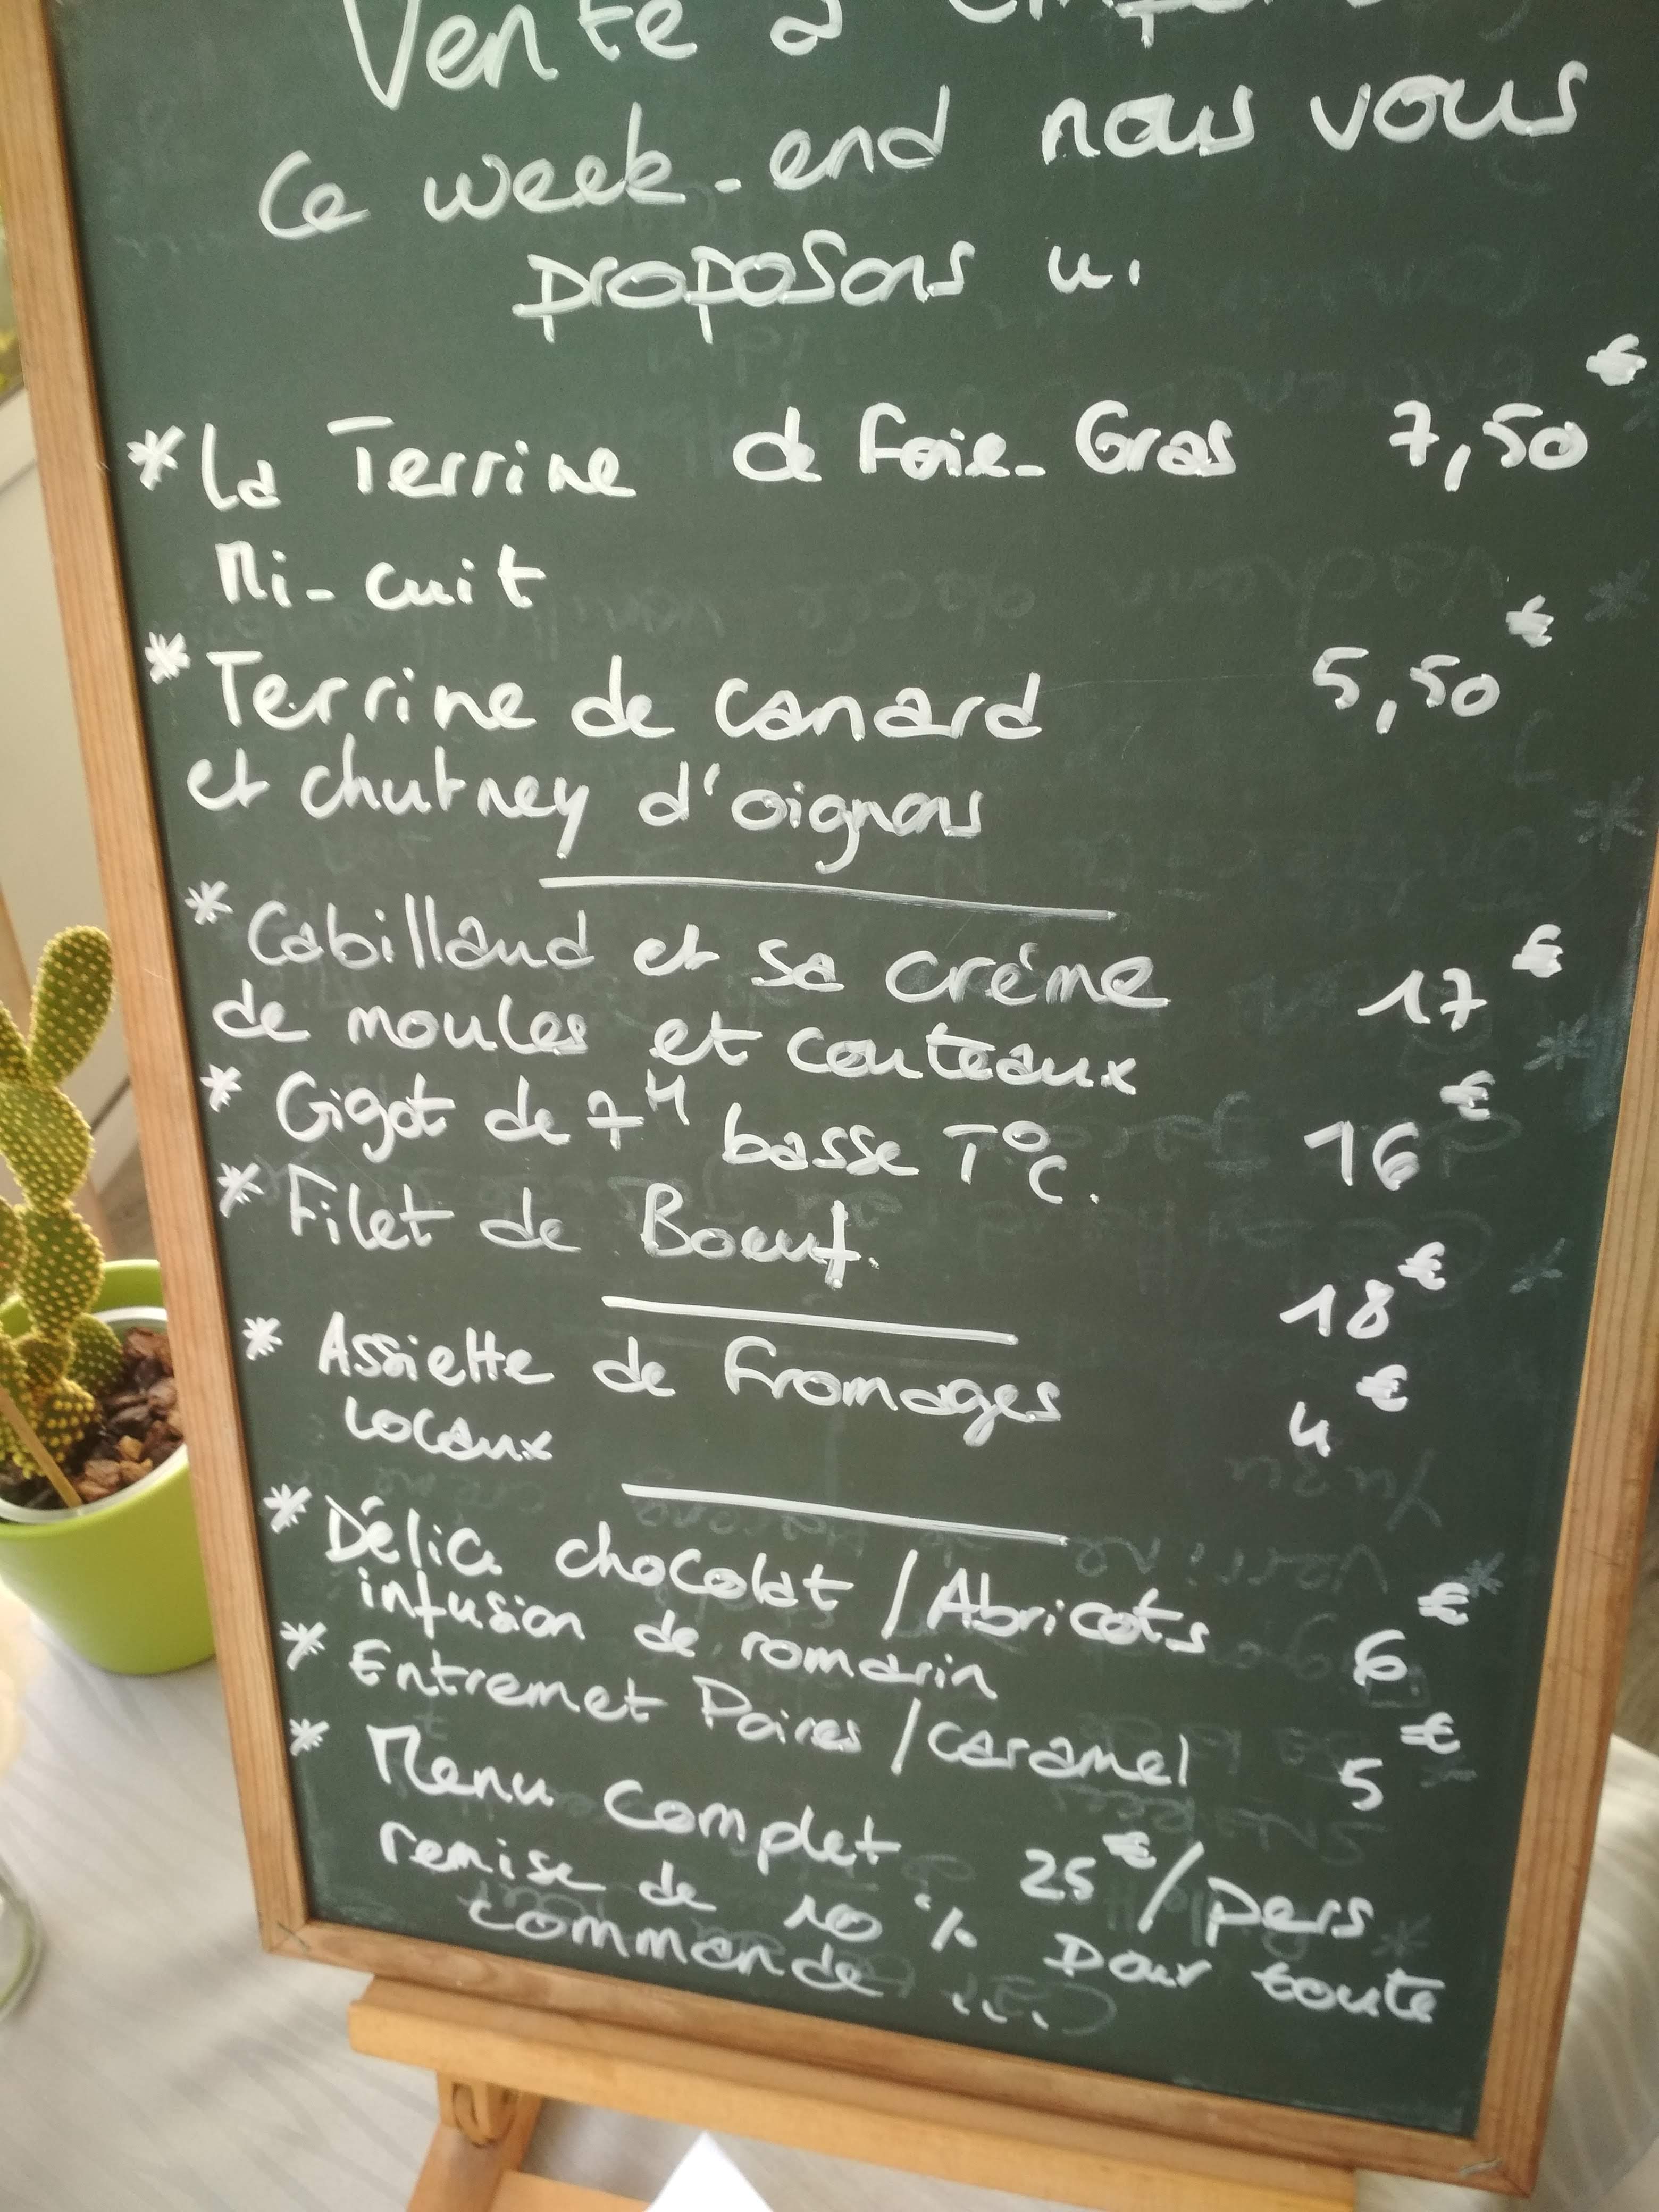 Vente à
Ce week-end nous vous
proposons ...
* La Terrine de Foie-Gras 7,50€
Mi-cuit
* Terrine de canard 5,50€
et chutney d'oignons
* Cabillaud et sa créme 17€
de moules et couteaux
* Gigot de 7H basse T°C. 16€
* Filet de Boeuf. 18€
* Assiette de Fromages 4€
Locaux
* Délice chocolat / Abricots 6€
infusion de romarin
* Entremet Poires / caramel 5€
* Menu Complet 25€/pers
remise de 10% pour toute
commande ...